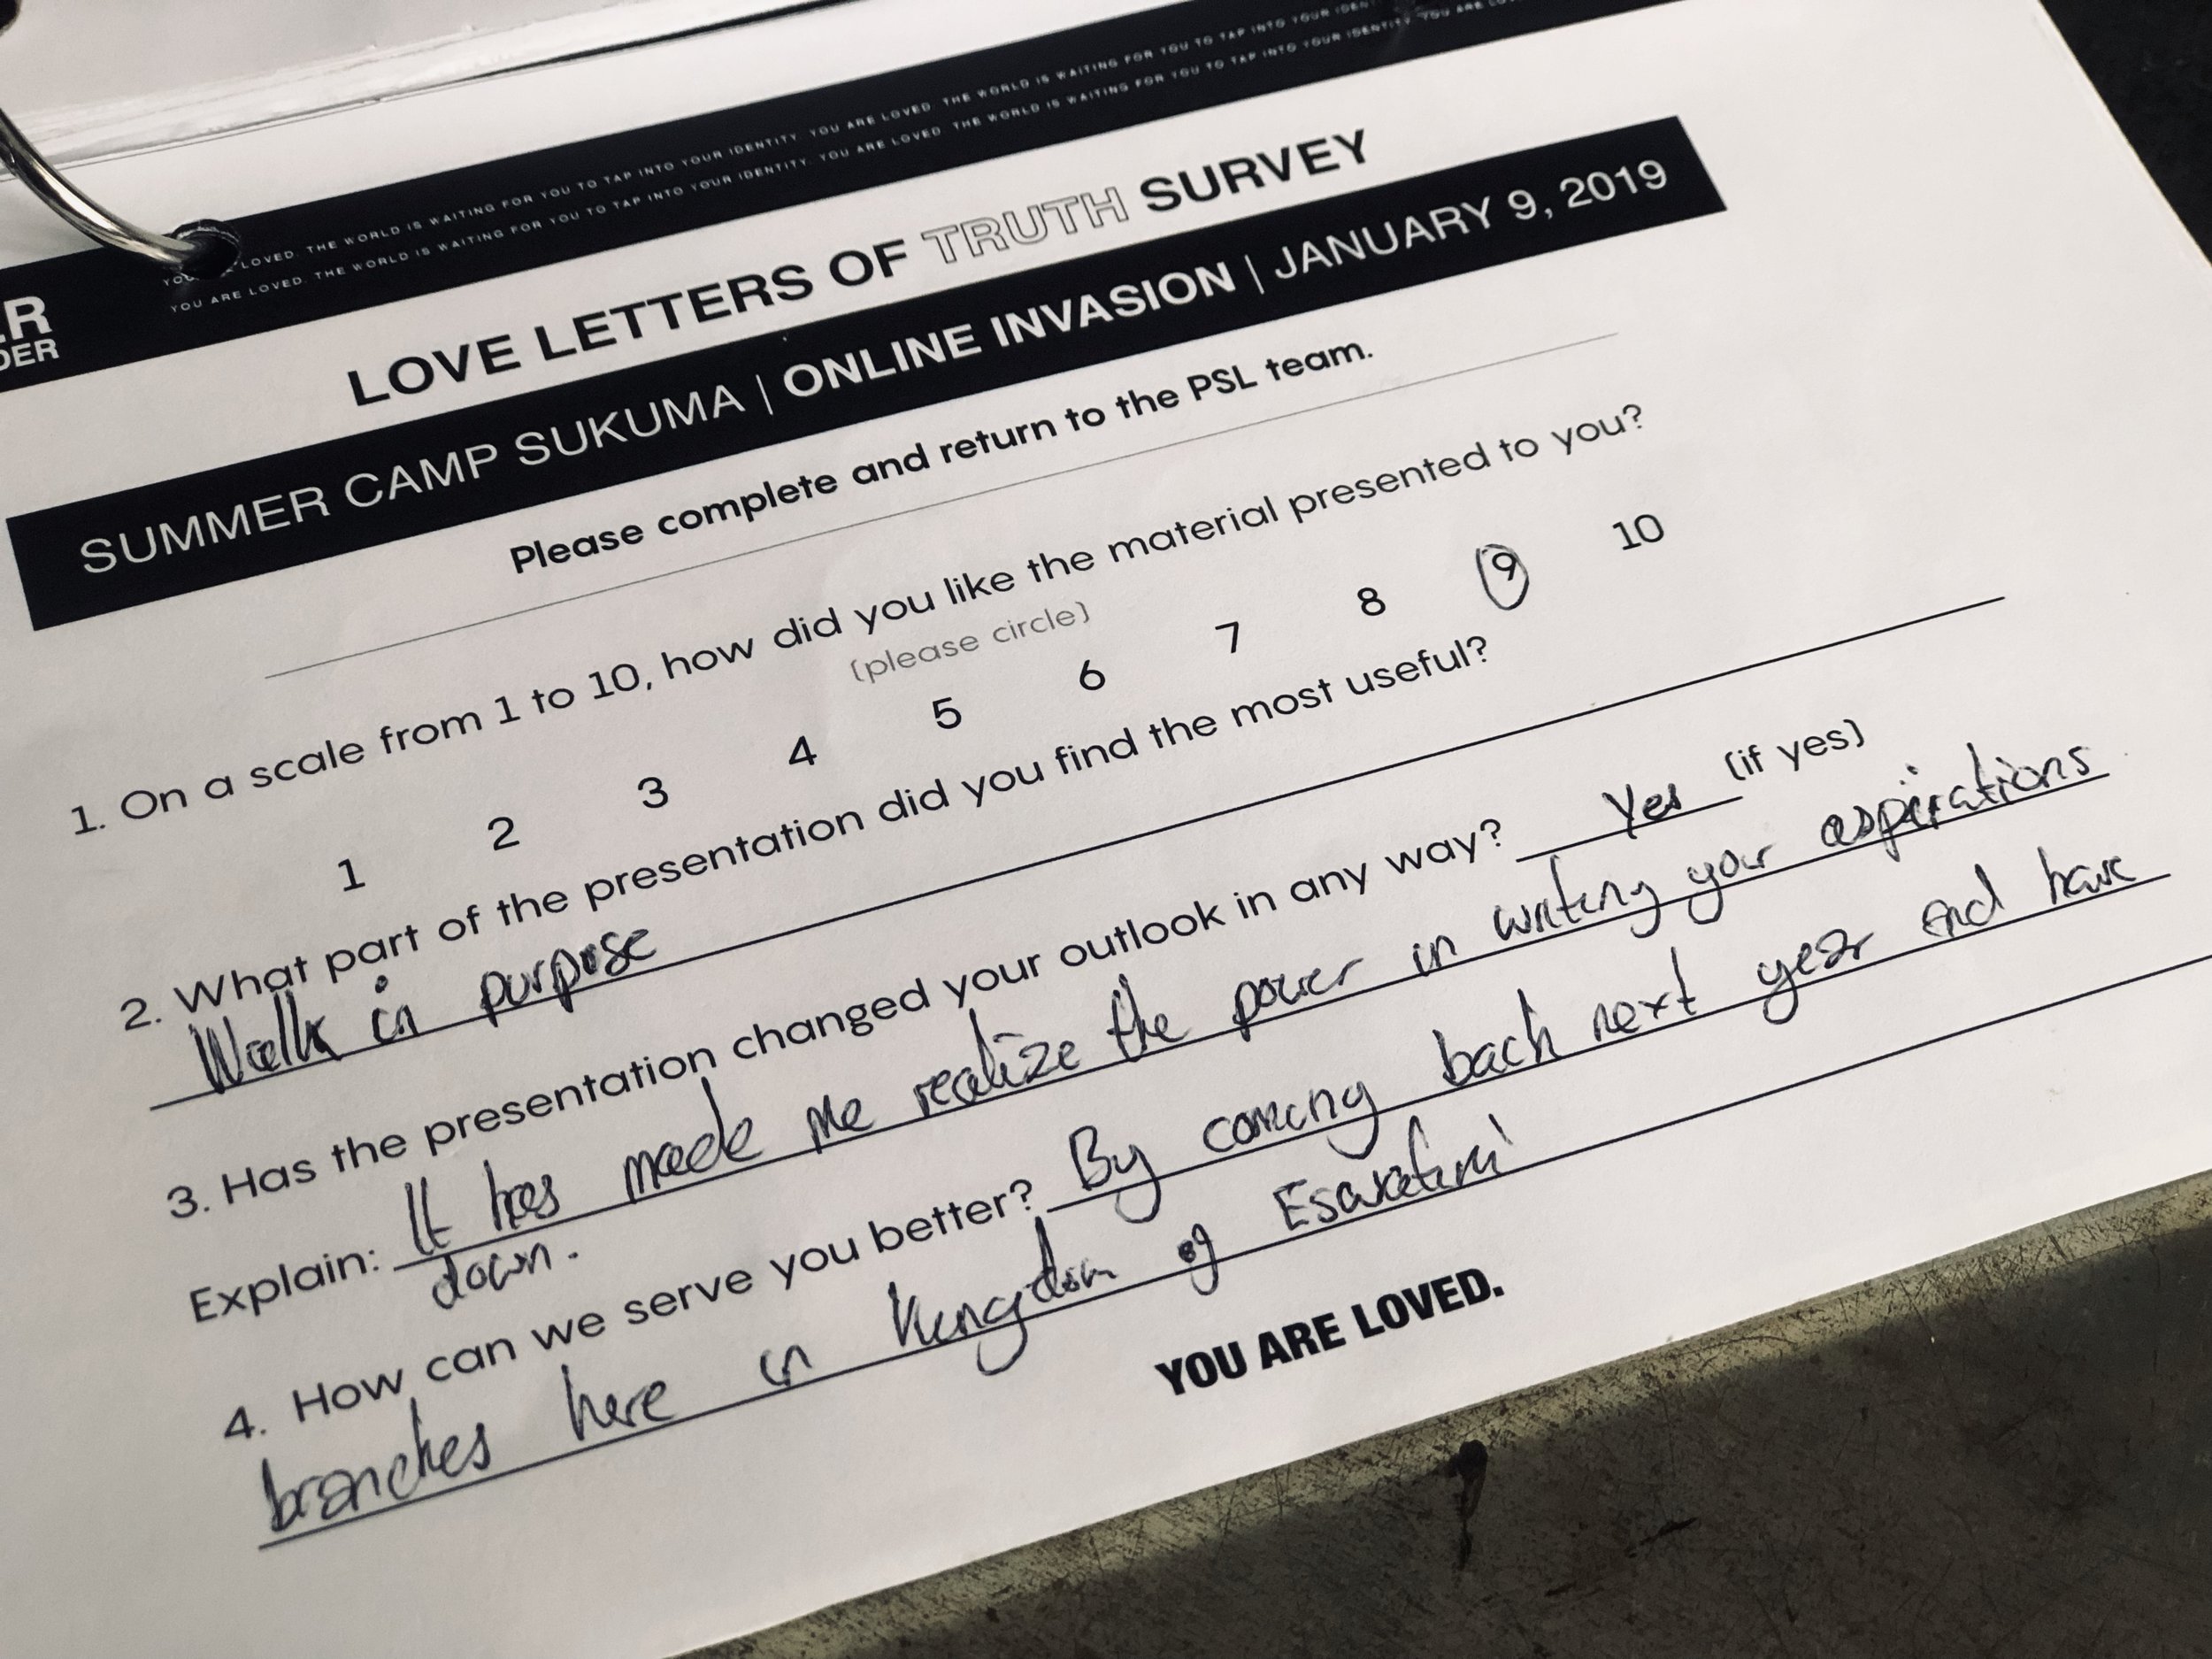 YOU ARE LOVED. THE WORLD IS WAITING FOR YOU TO TAP INTO YOUR IDENTITY. YOU ARE LOVED. THE WORLD IS WAITING FOR YOU TO TAP INTO YOUR IDEN
YOU ARE LOVED. THE WORLD IS WAITING FOR YOU TO TAP INTO YOUR IDENTITY. YOU ARE LOVED. THE WORLD IS WAITING FOR YOU TO TAP INTO YOUR IDENTITY. YOU ARE
LOVE LETTERS OF TRUTH SURVEY
SUMMER CAMP SUKUMA | ONLINE INVASION | JANUARY 9, 2019
Please complete and return to the PSL team.
1. On a scale from 1 to 10, how did you like the material presented to you?
(please circle)
1 2 3 4 5 6 7 8 9 10
2. What part of the presentation did you find the most useful?
Walk in purpose
3. Has the presentation changed your outlook in any way? Yes (if yes)
Explain: It has made me realize the power in writing your aspirations
down.
4. How can we serve you better? By coming back next year and have
branches here in Kingdom of Eswatini
YOU ARE LOVED.